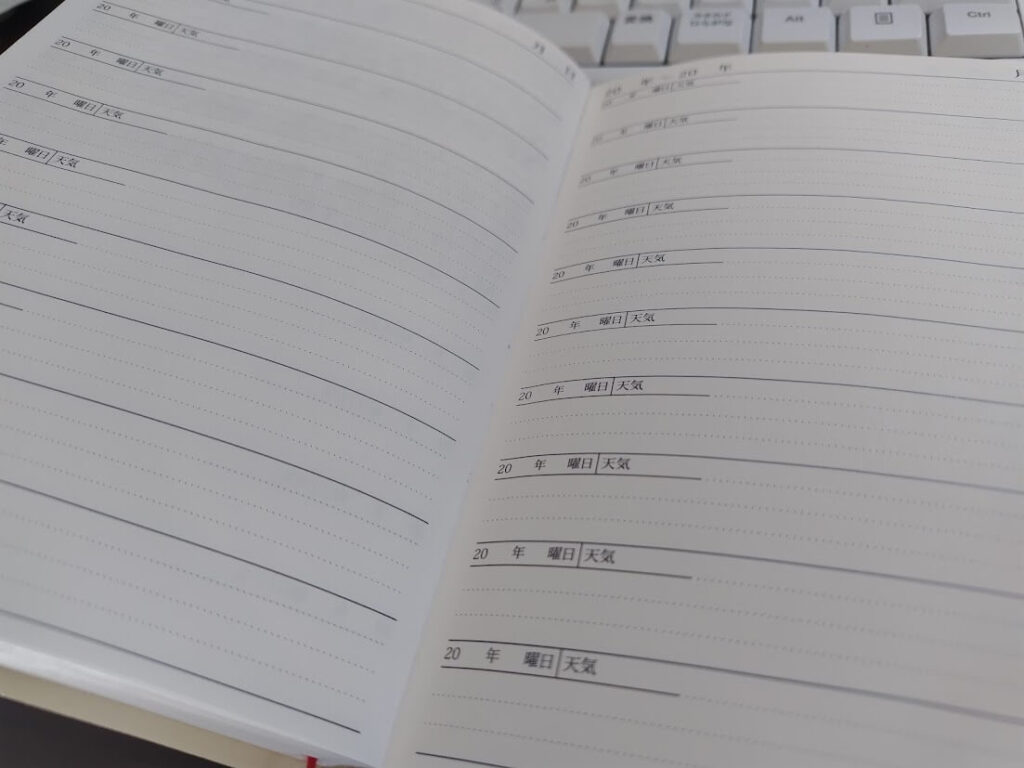 変換
カタカナ
ひらがな
Alt
Ctrl
月
日
20 年 曜日 天気
20 年 曜日 天気
20 年 曜日 天気
年 曜日 天気
天気
20 年 ～ 20 年
月
20 年 曜日 天気
20 年 曜日 天気
20 年 曜日 天気
20 年 曜日 天気
20 年 曜日 天気
20 年 曜日 天気
20 年 曜日 天気
20 年 曜日 天気
20 年 曜日 天気
20 年 曜日 天気